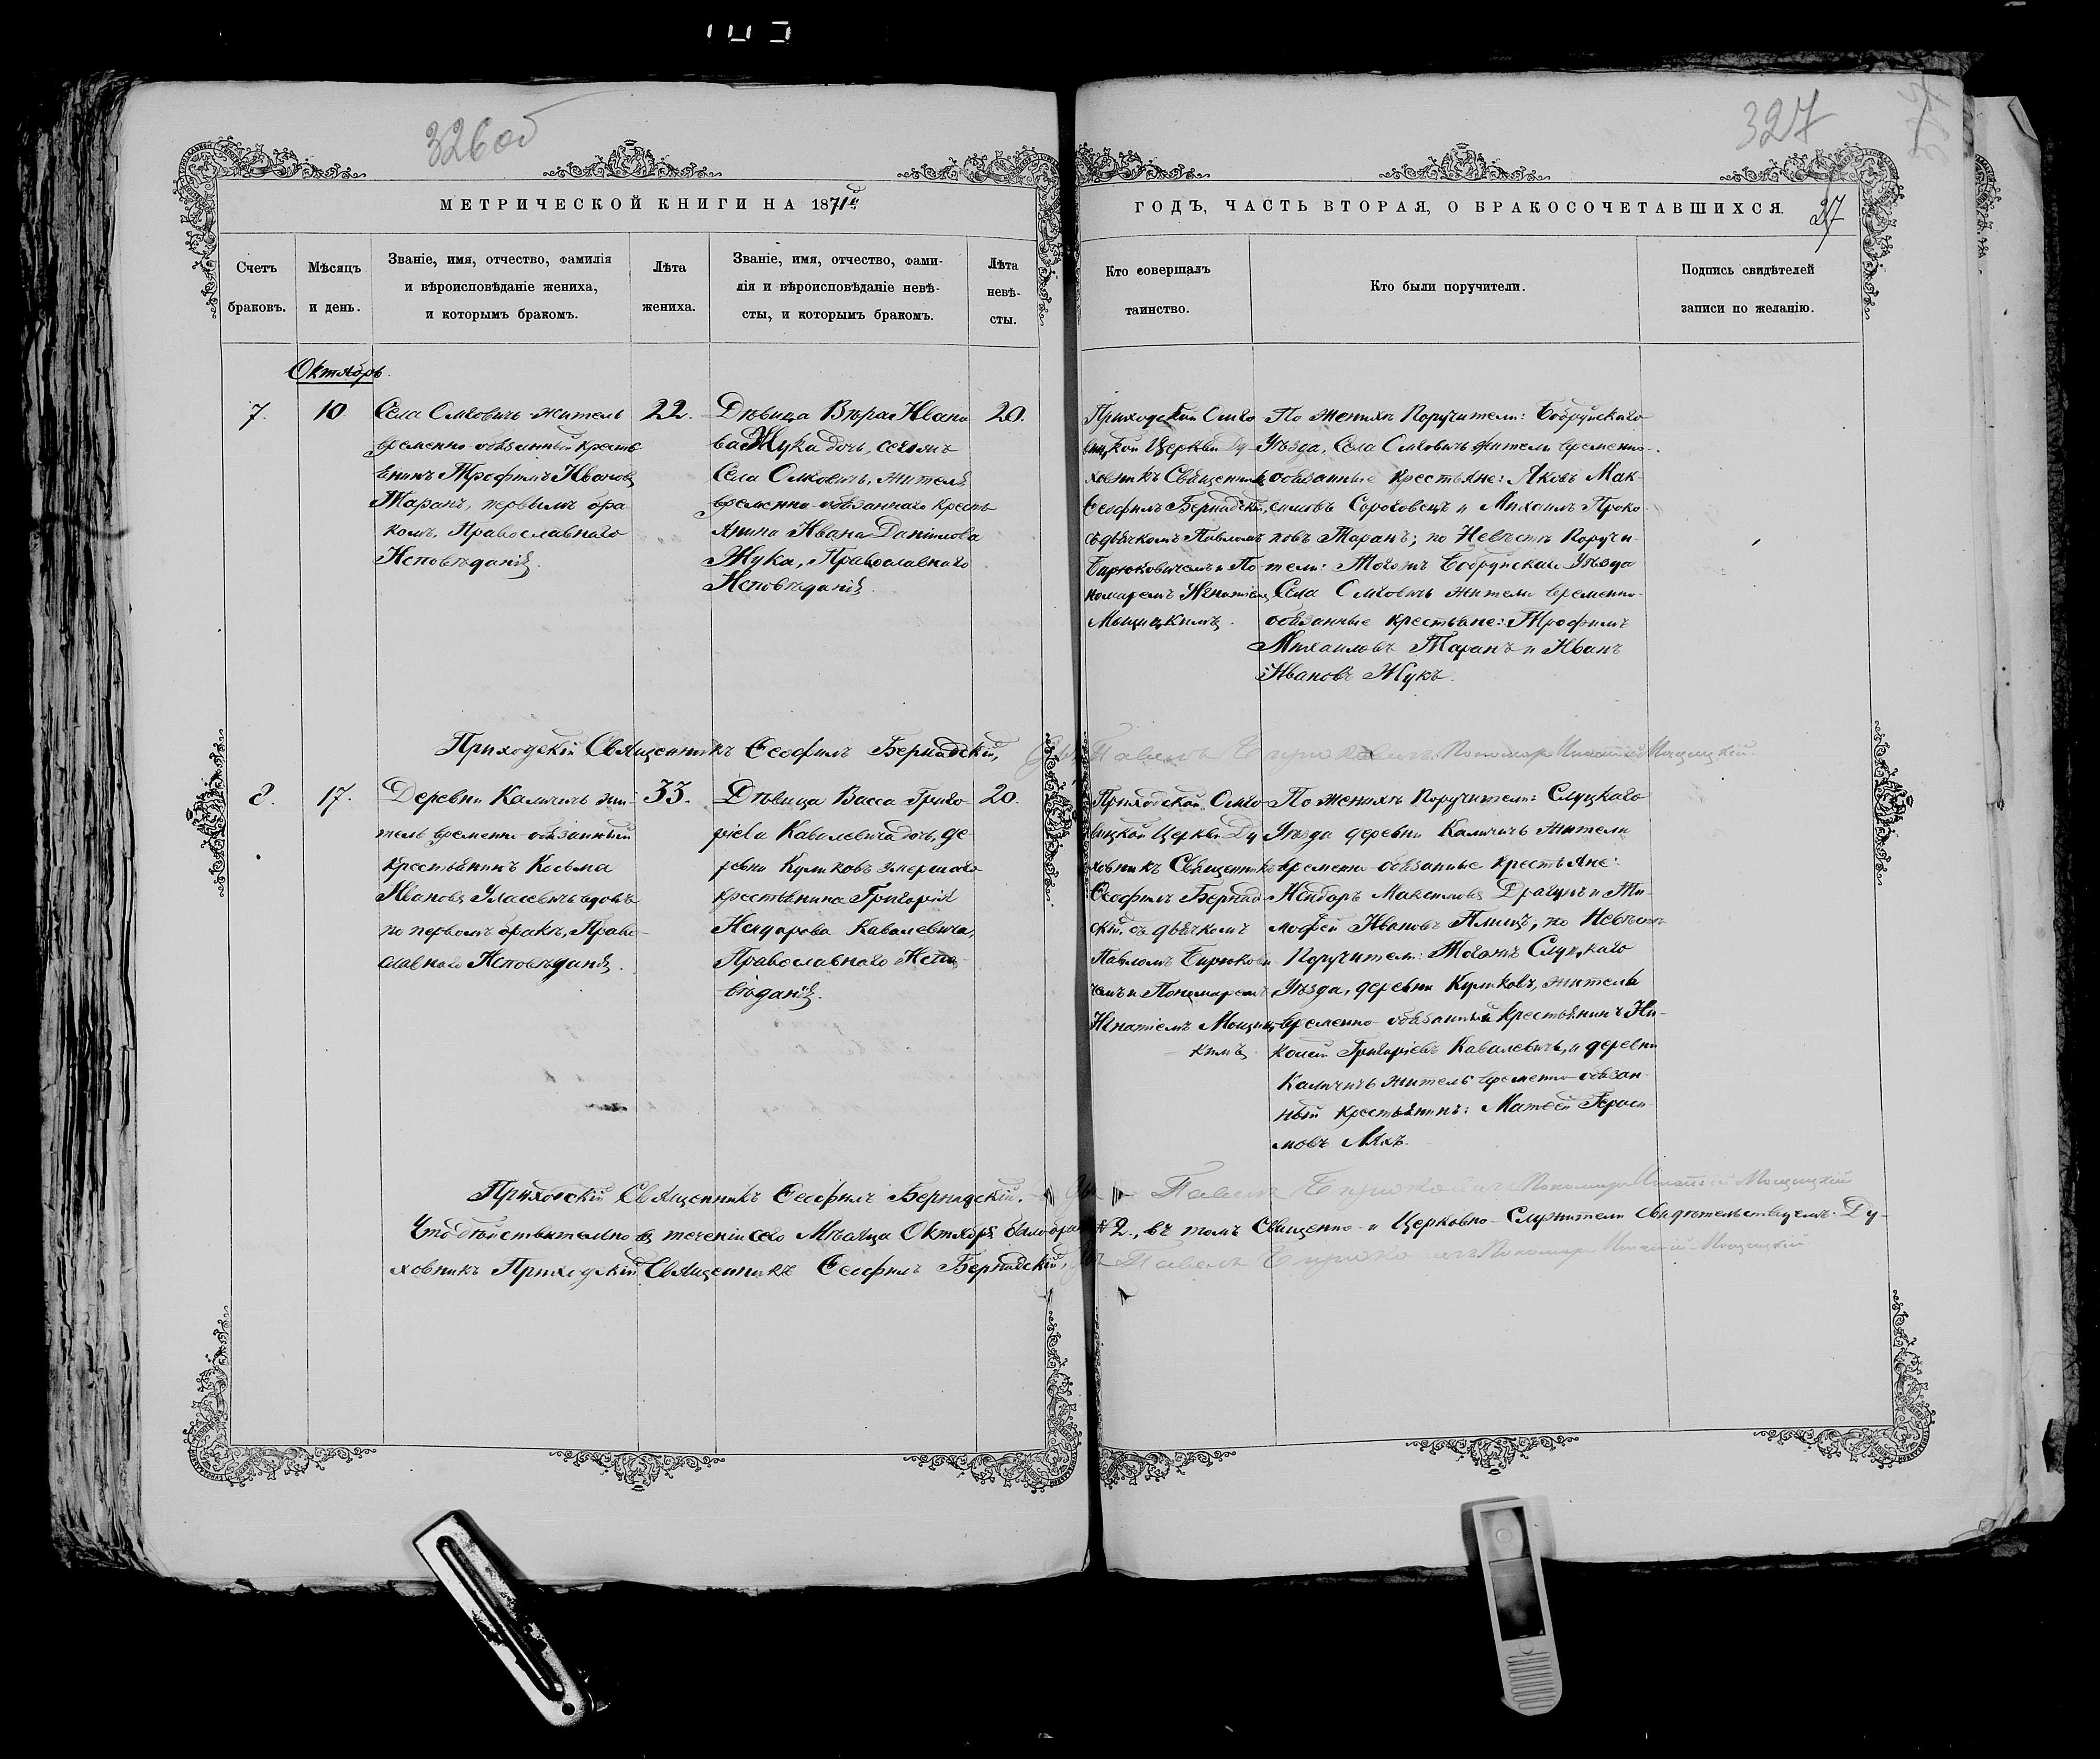 326 об
327
МЕТРИЧЕСКОЙ КНИГИ НА 1871й
ГОДЪ, ЧАСТЬ ВТОРАЯ, О БРАКОСОЧЕТАВШИХСЯ.
27
Счетъ
браковъ.
Мѣсяцъ
и день.
Званіе, имя, отчество, фамилія
и вѣроисповѣданіе жениха,
и которымъ бракомъ.
Лѣта
жениха.
Званіе, имя, отчество, фами-
лія и вѣроисповѣданіе невѣ-
сты, и которымъ бракомъ.
Лѣта
невѣ-
сты.
Кто совершалъ
таинство.
Кто были поручители.
Подпись свидѣтелей
записи по желанію.
Октябрь.
7.
10
Села Омговичъ житель
временно-обязанный кресть
янинъ Трофимъ Ивановъ
Таранъ, первымъ бра
комъ, Православнаго
Исповѣданія.
22.
Дѣвица Вѣра Ивано
ва Жука дочь,
Села Омговичъ, жителя
временно-обязаннаго кресть
янина Ивана Даніилова
Жука, Православнаго
Исповѣданія.
20.
Приходской Омго
вицкой Церкви Ду-
ховникъ Священникъ
Ѳеофилъ Бернадскій,
съ дьячкомъ Павломъ
Бирюковичемъ и По
номаремъ Игнатіемъ
Мощицкимъ.
По женихѣ Поручители: Бобруйскаго
Уѣзда, Села Омговичъ жители временно-
обязанные крестьяне: Яковъ Мак-
симовъ Сороговецъ и Михаилъ Проко
повъ Таранъ; по Невѣстѣ Поручи-
тели: Тогожъ Бобруйскаго Уѣзда
Села Омговичъ жители временно-
обязанные крестьяне: Трофимъ
Михаиловъ Таранъ и Иванъ
Ивановъ Жукъ.
Приходскій Священникъ Ѳеофилъ Бернадскій,
Павелъ Бирюковичъ. Пономарь Игнатій Мощицкій
8.
17.
Деревни Каличичъ жи-
тель временно-обязанный
крестьянинъ Косьма
Ивановъ вдовъ
по первомъ бракѣ, Право-
славнаго Исповѣданія.
33.
Дѣвица Васса Григо
ріева Кавалевича дочь, де
ревни Куликовъ умершаго
крестьянина Григорія
Исидорова Кавалевича,
Православнаго Испо
вѣданія.
20.
Приходской Омго-
вицкой Церкви Ду
ховникъ Священникъ
Ѳеофилъ Бернад-
скій, съ дьячкомъ
Павломъ Бирюкови
чемъ и Пономаремъ
Игнатіемъ Мощиц-
кимъ.
По женихѣ Поручители: Слуцкаго
Уѣзда деревни Каличичъ жители
временно обязанные крестьяне:
Исидоръ Максимовъ Драгунъ и Ти-
мофей Ивановъ, по Невѣстѣ
Поручители: Тогожъ Слуцкаго
Уѣзда, деревни Куликовъ, житель
временно-обязанный крестьянинъ Ни-
колай Григоріевъ Кавалевичъ, и деревни
Каличичъ житель временно-обязан-
ный крестьянинъ: Матѳей Гераси
мовъ Ляхъ.
Приходскій Священникъ Ѳеофилъ Бернадскій,
Павелъ Бирюковичъ Пономарь Игнатій Мощицкій
Что дѣйствительно въ теченіи сего Мѣсяца Октября было браковъ
2., въ томъ Священно- и Церковно-Служители свидѣтельствуемъ: Ду-
ховникъ Приходскій Священникъ Ѳеофилъ Бернадскій,
Павелъ Бирюковичъ Пономарь Игнатій Мощицкій